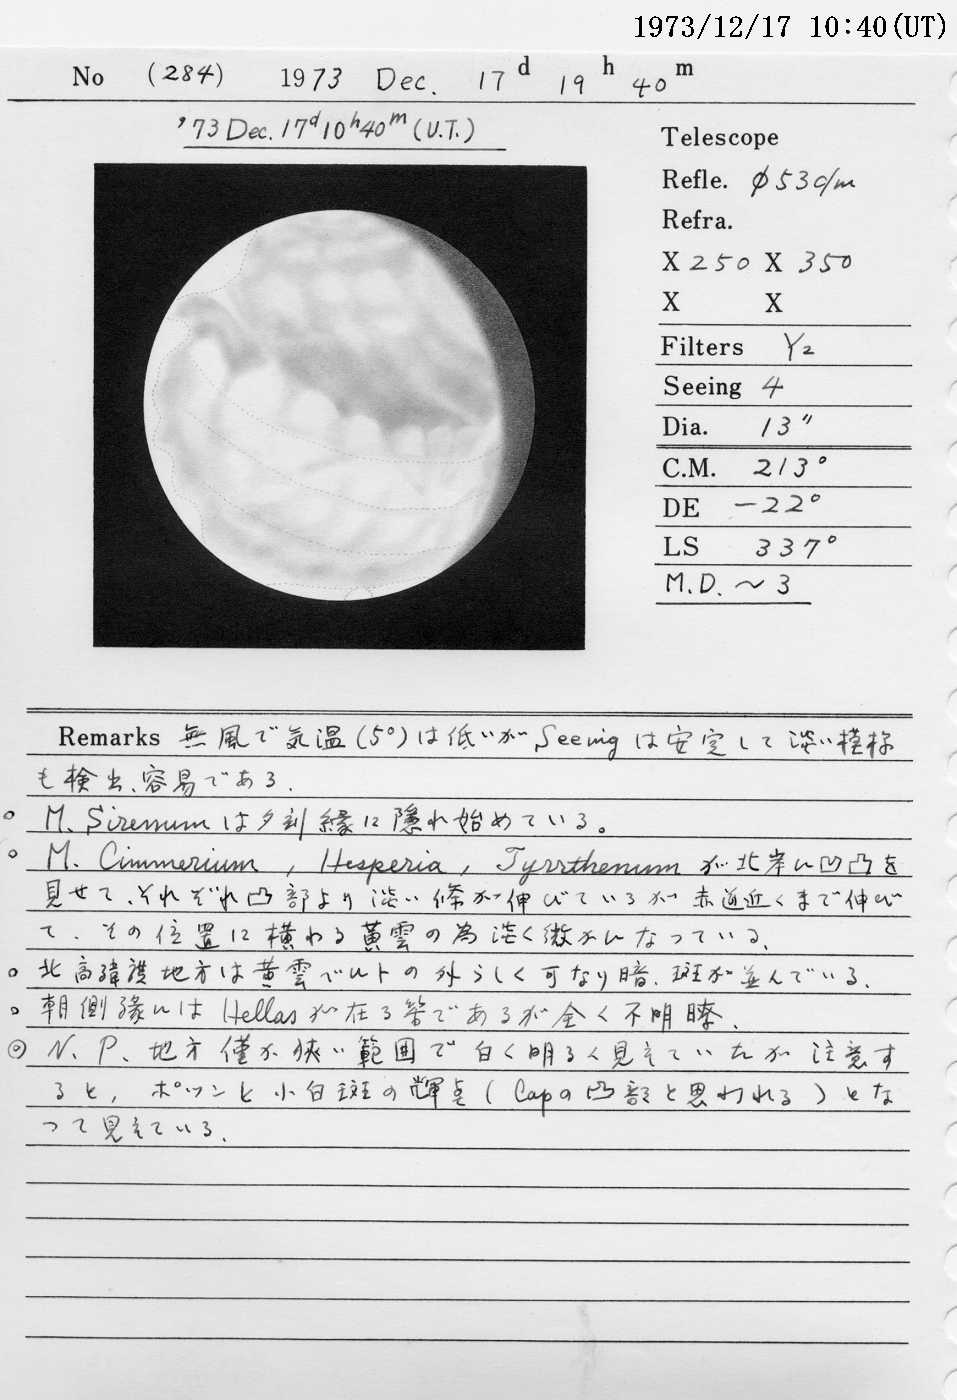 1973/12/17 10:40(UT)
No (284) 1973 Dec. 17 d 19 h 40 m
'73 Dec. 17d 10h 40m (U.T.)
Telescope
Refle. φ53c/m
Refra.
X 250 X 350
X X
Filters Y2
Seeing 4
Dia. 13"
C.M. 213°
DE -22°
LS 337°
M.D. ~ 3
Remarks 無風で気温(5°)は低いが Seeing は安定して淡い模様
も検出、容易である.
○ M. Sirenum は夕刻縁に隠れ始めている。
○ M. Cimmerium, Hesperia, Tyrrhenum が北岸に凹凸を
見せて、それぞれ凸部より淡い條が伸びているが 赤道近くまで伸び
て、その位置に横わる黄雲の為淡く微かになっている.
○ 北高緯度地方は黄雲ベルトの外らしく可なり暗.斑が並んでいる.
○ 朝側縁には Hellas が在る筈であるが全く不明瞭.
◎ N. P. 地方僅か狭い範囲で白く明るく見えていたが注意す
ると, ポツンと小白斑の輝点(Capの凸部と思われる)とな
って見えている.